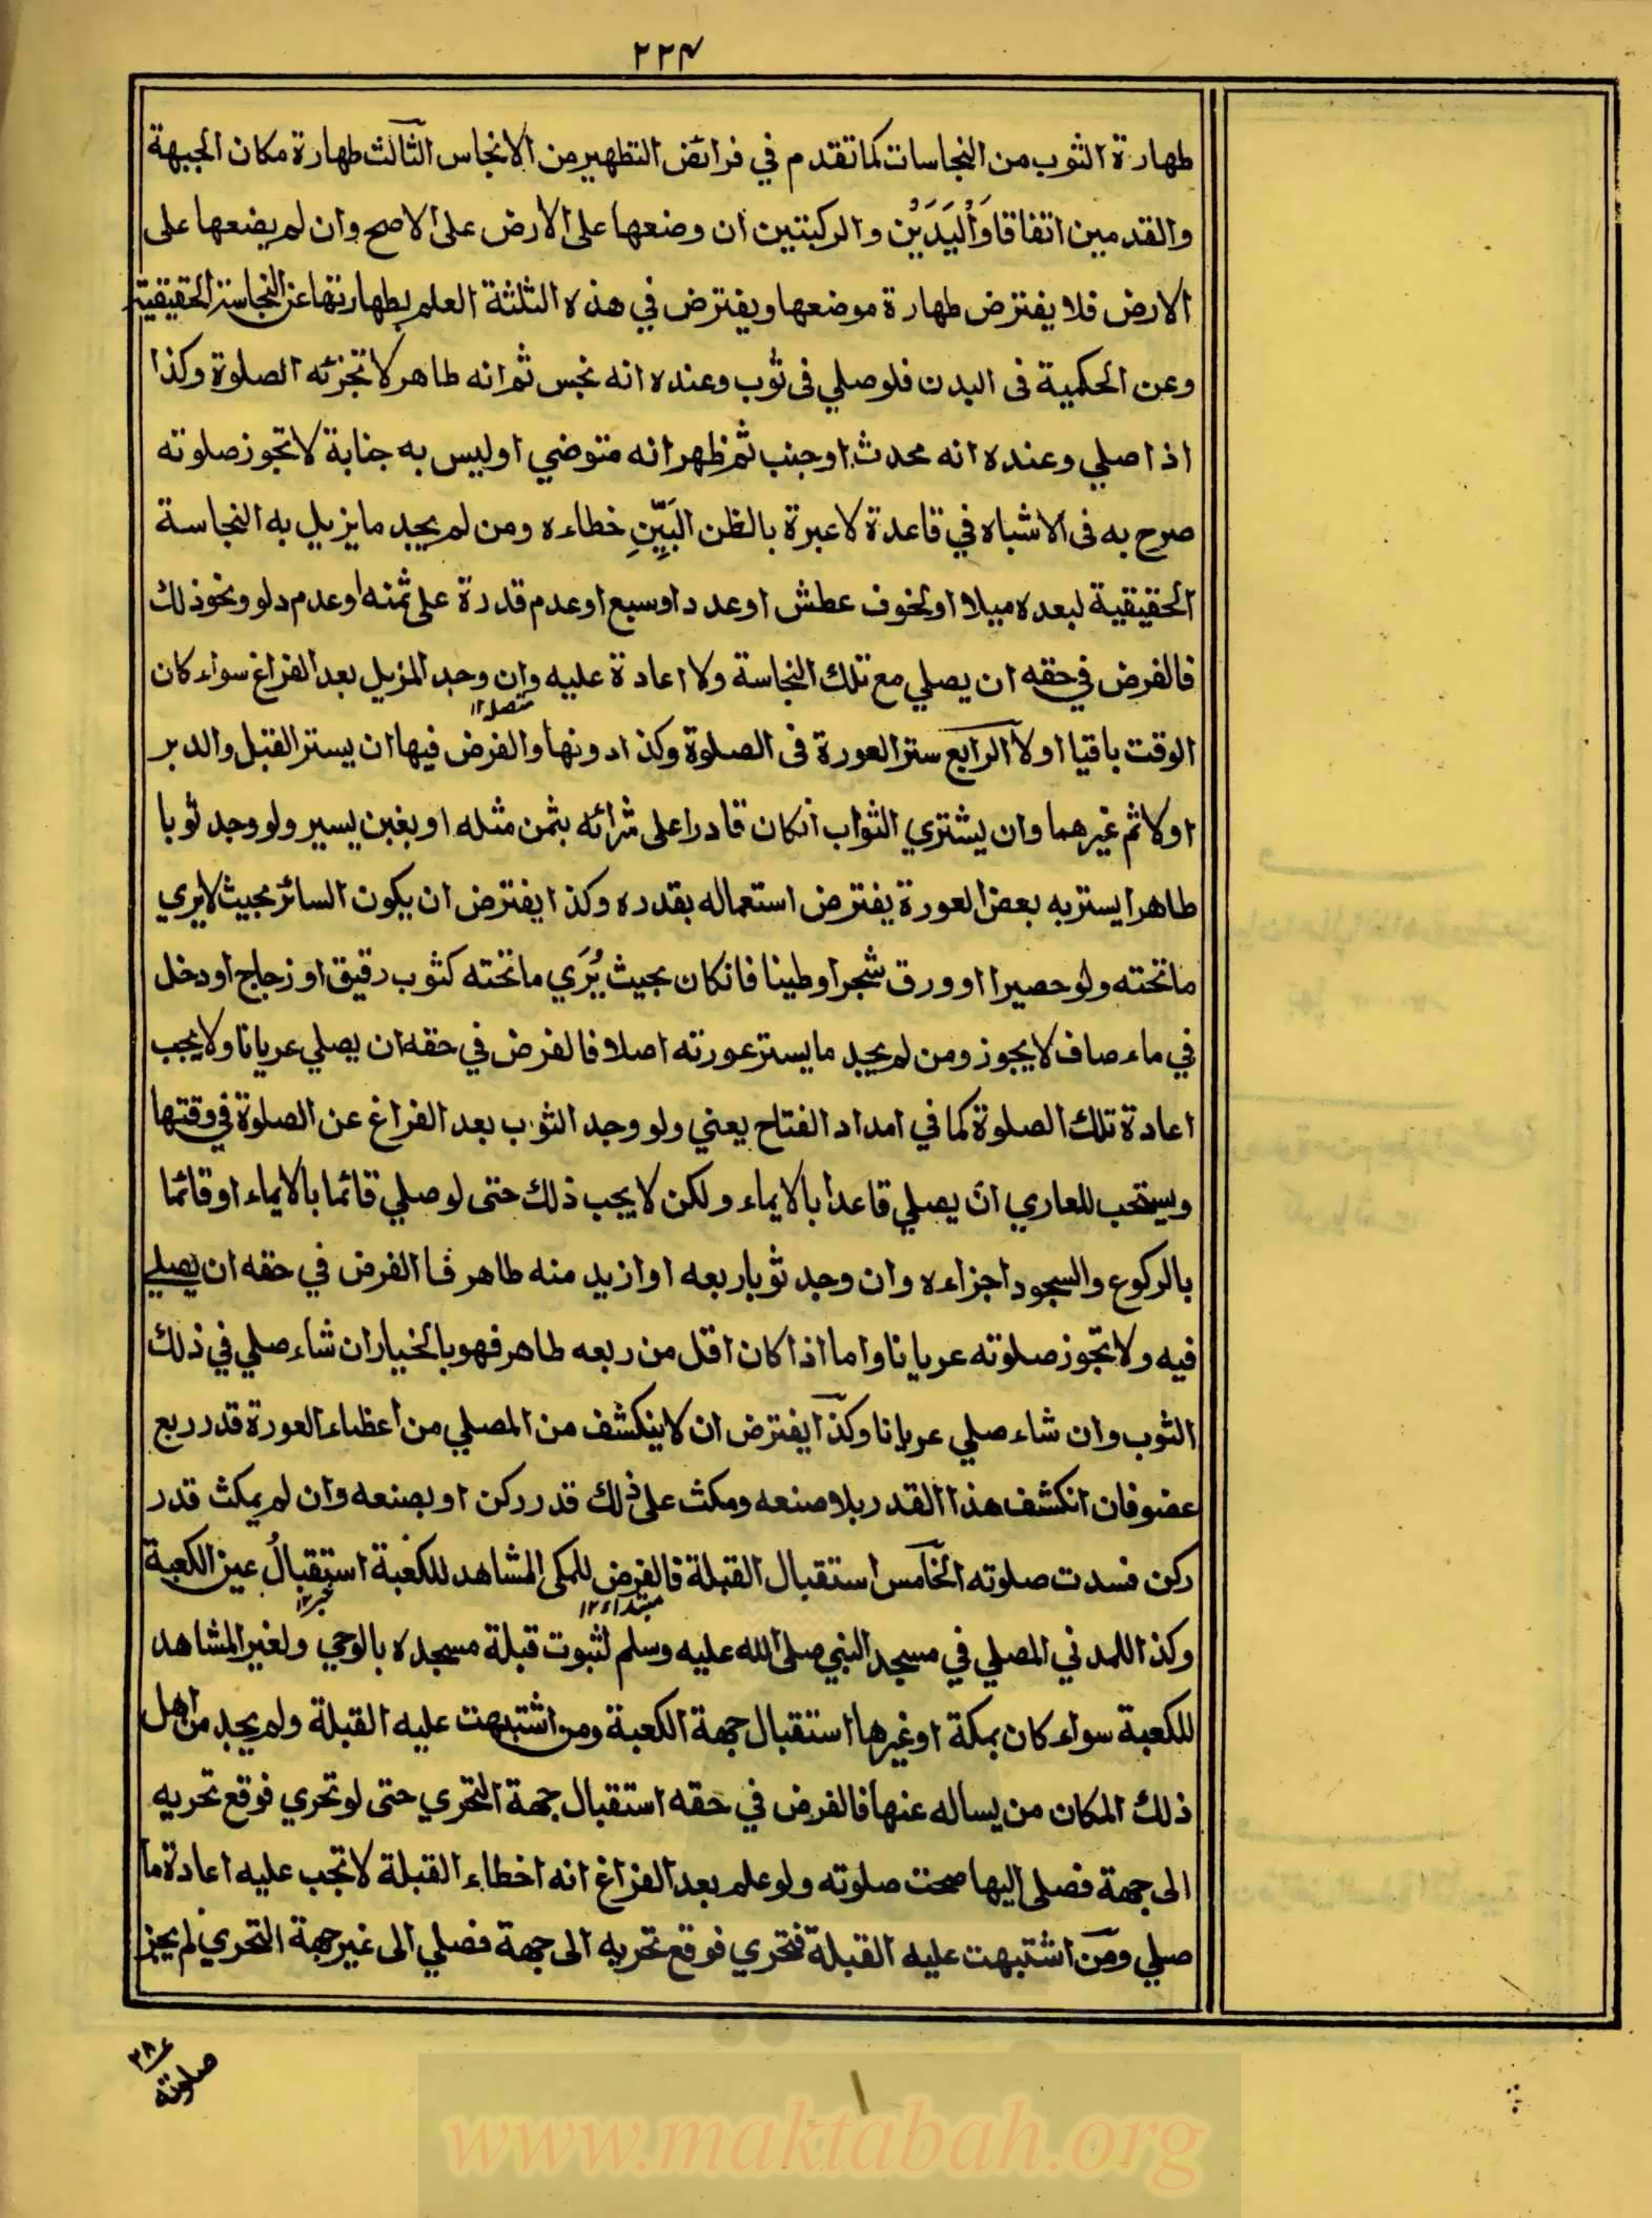 ۲۲۴
طهارة الثوب من النجاسات كما تقدم في فرائض التطهير من الانجاس الثالث طهارة مكان الجبهة
والقدمين اتفاقا وَالْيَدَيْن والركبتين ان وضعها على الارض على الاصح وان لم يضعها على
الارض فلا يفترض طهارة موضعها ويفترض في هذه الثلثة العلم بطهارتها عن النجاسة الحقيقية
وعن الحكمية فى البدن فلو صلي فى ثوب وعنده انه نجس ثم انه طاهر لا تجزئه الصلوة وكذا
اذا صلي وعنده انه محدث او جنب ثم ظهر انه متوضي او ليس به جنابة لا تجوز صلوته
صرح به فى الاشباه في قاعدة لا عبرة بالظن البَيِّنِ خطاءه ومن لم يجد ما يزيل به النجاسة
الحقيقية لبعده ميلا او لخوف عطش او عدد او سبع او عدم قدرة على ثمنه او عدم دلو ونحو ذلك
فالفرض في حقه ان يصلي مع تلك النجاسة ولا اعادة عليه وان وجد المزيل بعد الفراغ سواء كان
متصل١٢
الوقت باقيا او لا الرابع ستر العورة فى الصلوة وكذا دونها والفرض فيها ان يستر القبل والدبر
اولا ثم غيرهما وان يشتري الثواب انكان قادرا على شرائه بثمن مثله او بغبن يسير ولو وجد ثوبا
طاهرا يستر به بعض العورة يفترض استعماله بقدره وكذا يفترض ان يكون الساتر بحيث لا يري
ما تحته ولو حصيرا او ورق شجر او طينا فانكان بحيث يُرَي ما تحته كثوب رقيق او زجاج او دخل
في ماء صاف لا يجوز ومن لم يجد ما يستر عورته اصلا فالفرض في حقه ان يصلي عريانا ولا يجب
اعادة تلك الصلوة كما في امداد الفتاح يعني ولو وجد الثوب بعد الفراغ عن الصلوة في وقتها
ويستحب للعاري ان يصلي قاعدا بالايماء ولكن لا يجب ذلك حتى لو صلي قائما بالايماء او قائما
بالركوع والسجود اجزاءه وان وجد ثوبا ربعه او ازيد منه طاهر فالفرض في حقه ان يصلي
فيه ولا تجوز صلوته عريانا واما اذا كان اقل من ربعه طاهر فهو بالخيار ان شاء صلي في ذلك
الثوب وان شاء صلي عريانا وكذا يفترض ان لا ينكشف من المصلي من اعظاء العورة قدر ربع
عضو فان انكشف هذا القدر بلا صنعه ومكث على ذلك قدر ركن او بصنعه وان لم يمكث قدر
ركن فسدت صلوته الخامس استقبال القبلة فالفرض للمكي المشاهد للكعبة استقبالُ عين الكعبة
مبتداء١٢ خبر١٢
وكذا للمدني المصلي في مسجد النبي صلى الله عليه وسلم لثبوت قبلة مسجده بالوحي ولغير المشاهد
للكعبة سواء كان بمكة او غيرها استقبال جهة الكعبة ومن اشتبهت عليه القبلة ولم يجد من اهل
ذلك المكان من يساله عنها فالفرض في حقه استقبال جهة التحري حتى لو تحري فوقع تحريه
الى جهة فصلى اليها صحت صلوته ولو علم بعد الفراغ انه اخطاء القبلة لا تجب عليه اعادة ما
صلي ومن اشتبهت عليه القبلة فتحري فوقع تحريه الى جهة فصلي الى غير جهة التحري لم يجز
صلوته
www.maktabah.org